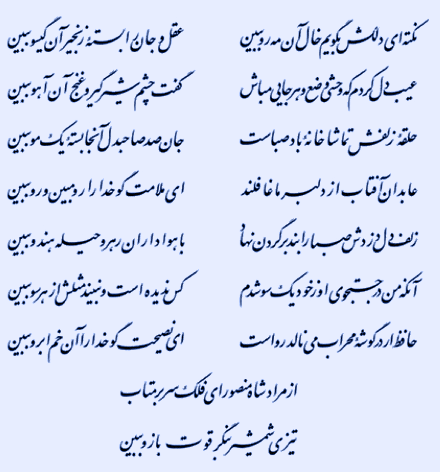 نکته‌ای دلکش بگویم خال آن مه رو ببین عقل و جان را بستهٔ زنجیر آن گیسو ببین
عیب دل کردم که وحشی وضع و هرجایی مباش گفت چشم شیرگیر و غنج آن آهو ببین
حلقهٔ زلفش تماشاخانهٔ باد صباست جان صد صاحبدل آنجا بستهٔ یک مو ببین
عابدان آفتاب از دلبر ما غافلند ای ملامت گو خدا را رو مبین و رو ببین
زلف دل دزدش صبا را بند بر گردن نهاد با هواداران رهرو حیله هندو ببین
آنکه من در جستجوی او ز خود یک سو شدم کس ندیده است و نبیند مثلش از هر سو ببین
حافظ ار در گوشهٔ محراب می نالد رواست ای نصیحت گو خدا را آن خم ابرو ببین
از مراد شاه منصور ای فلک سر برمتاب
تیزی شمشیر بنگر قوت بازو ببین